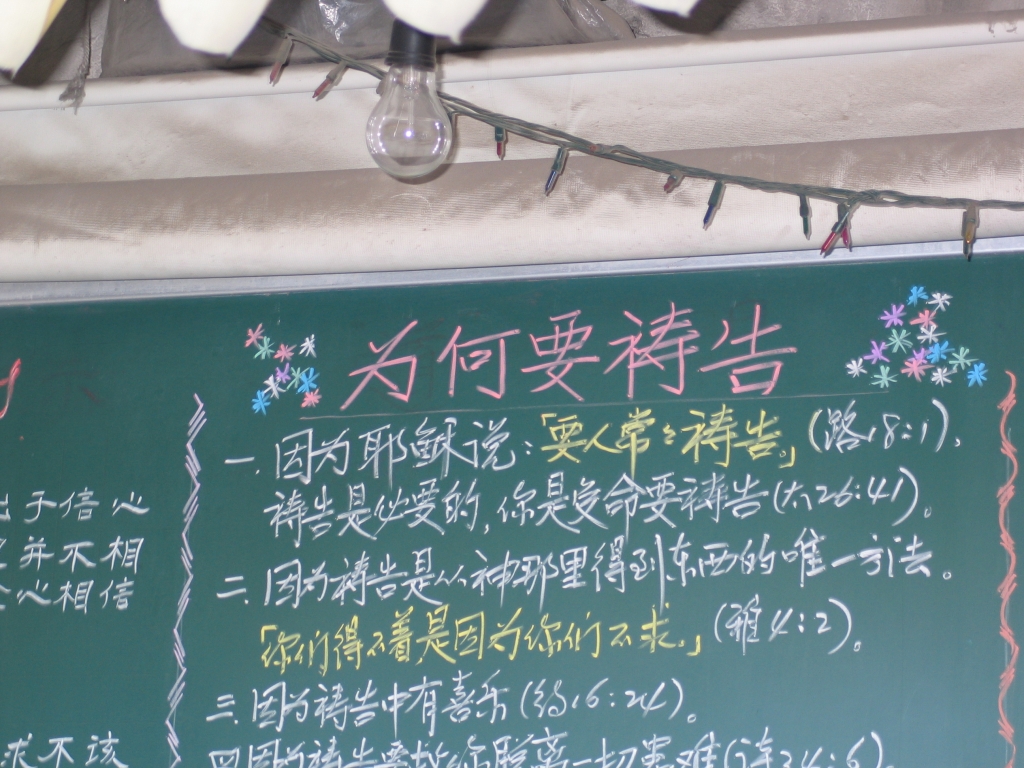 为何要祷告
一、因为耶稣说:「要人常々祷告。」(路18:1),
祷告是必要的,你是受命要祷告(太26:41)。
二、因为祷告是从神那里得到东西的唯一方法。
「你们得不着是因为你们不求。」(雅4:2)。
三、因为祷告中有喜乐(约16:24)。
四因为祷告要救你脱离一切患难(诗34:6)
于信心
并不相
心相信
求不该